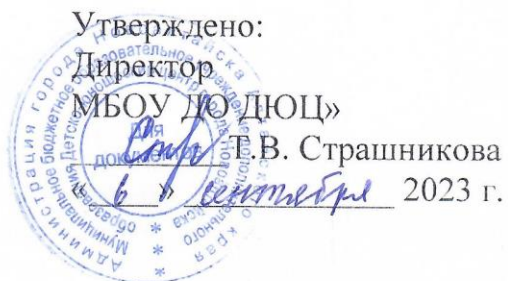 Утверждено:
Директор
МБОУ ДО ДЮЦ»
Т.В. Страшникова
« 6 » сентября 2023 г.
Администрация города
Муниципальное бюджетное образовательное учреждение
для
документов